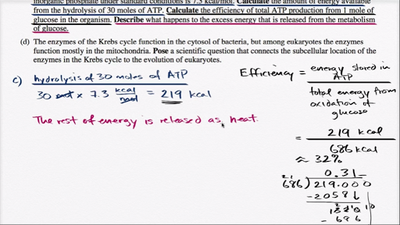 inorganic phosphate under standard conditions is 7.3 kcal/mol. Calculate the amount of energy available
from the hydrolysis of 30 moles of ATP. Calculate the efficiency of total ATP production from 1 mole of
glucose in the organism. Describe what happens to the excess energy that is released from the metabolism
of glucose.
(d) The enzymes of the Krebs cycle function in the cytosol of bacteria, but among eukaryotes the enzymes
function mostly in the mitochondria. Pose a scientific question that connects the subcellular location of the
enzymes in the Krebs cycle to the evolution of eukaryotes.
c) hydrolysis of 30 moles of ATP
30 mol × 7.3 kcal/mol = 219 kcal
The rest of energy is released as heat.
Efficiency = energy stored in ATP
total energy from
oxidation of
glucose
= 219 kcal
686 kcal
≈ 32%
0.31
686 219.000
- 2058
- 686